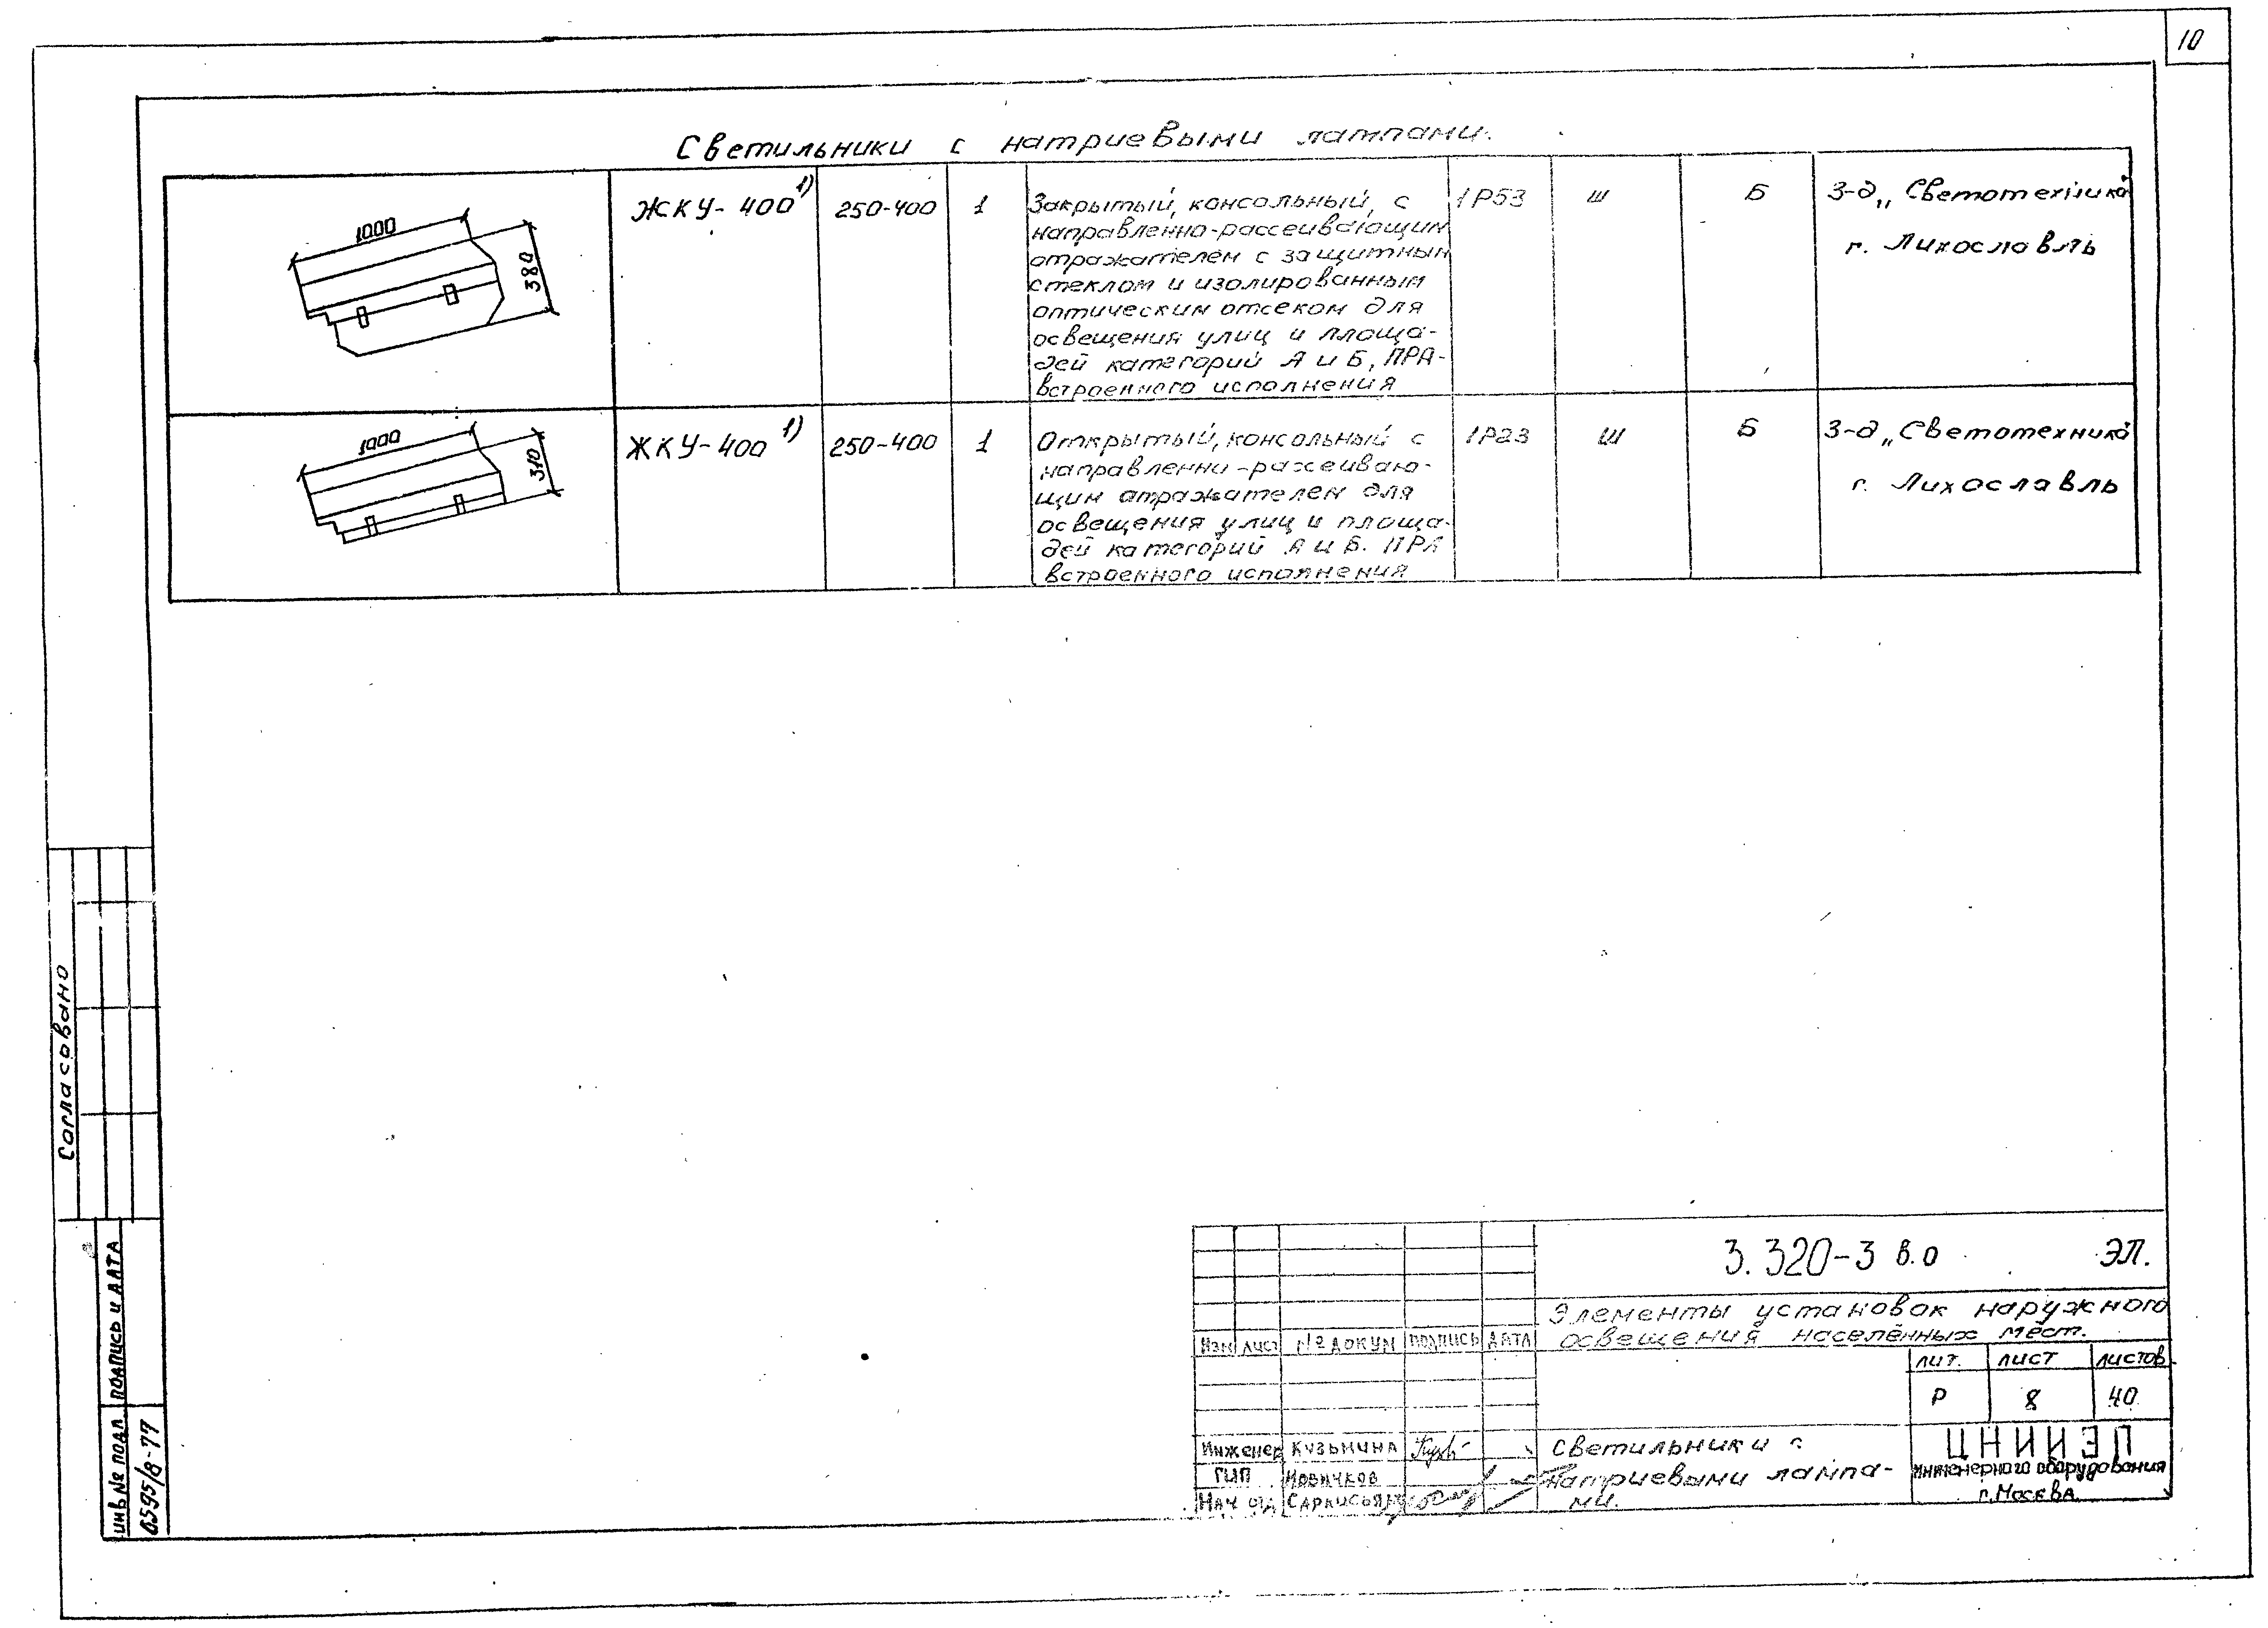 10
Светильники с натриевыми лампами.
1000
380
ЖКУ-400 1)
250-400
1
Закрытый, консольный, с
направленно-рассеивающим
отражателем с защитным
стеклом и изолированным
оптическим отсеком для
освещения улиц и площа-
дей категорий А и Б, ПРА-
встроенного исполнения
IP53
Ш
Б
З-д „Светотехника
г. Лихославль
1000
310
ЖКУ-400 1)
250-400
1
Открытый, консольный с
направленно-рассеиваю-
щим отражателем для
освещения улиц и площа-
дей категорий А и Б. ПРА
встроенного исполнения
IP23
Ш
Б
З-д „Светотехника
г. Лихославль
Согласовано
Инв № подл Подпись и дата
6595/8-77
3.320-3 в.0 ЭЛ.
Элементы установок наружного
освещения населённых мест.
Изм Лист № докум Подпись Дата
Лит. Лист Листов
Р 8 40
Инженер Кузьмина
ГИП Новичков
Нач отд Саркисьян
Светильники с
натриевыми лампа-
ми.
ЦНИИЭП
инженерного оборудования
г. Москва